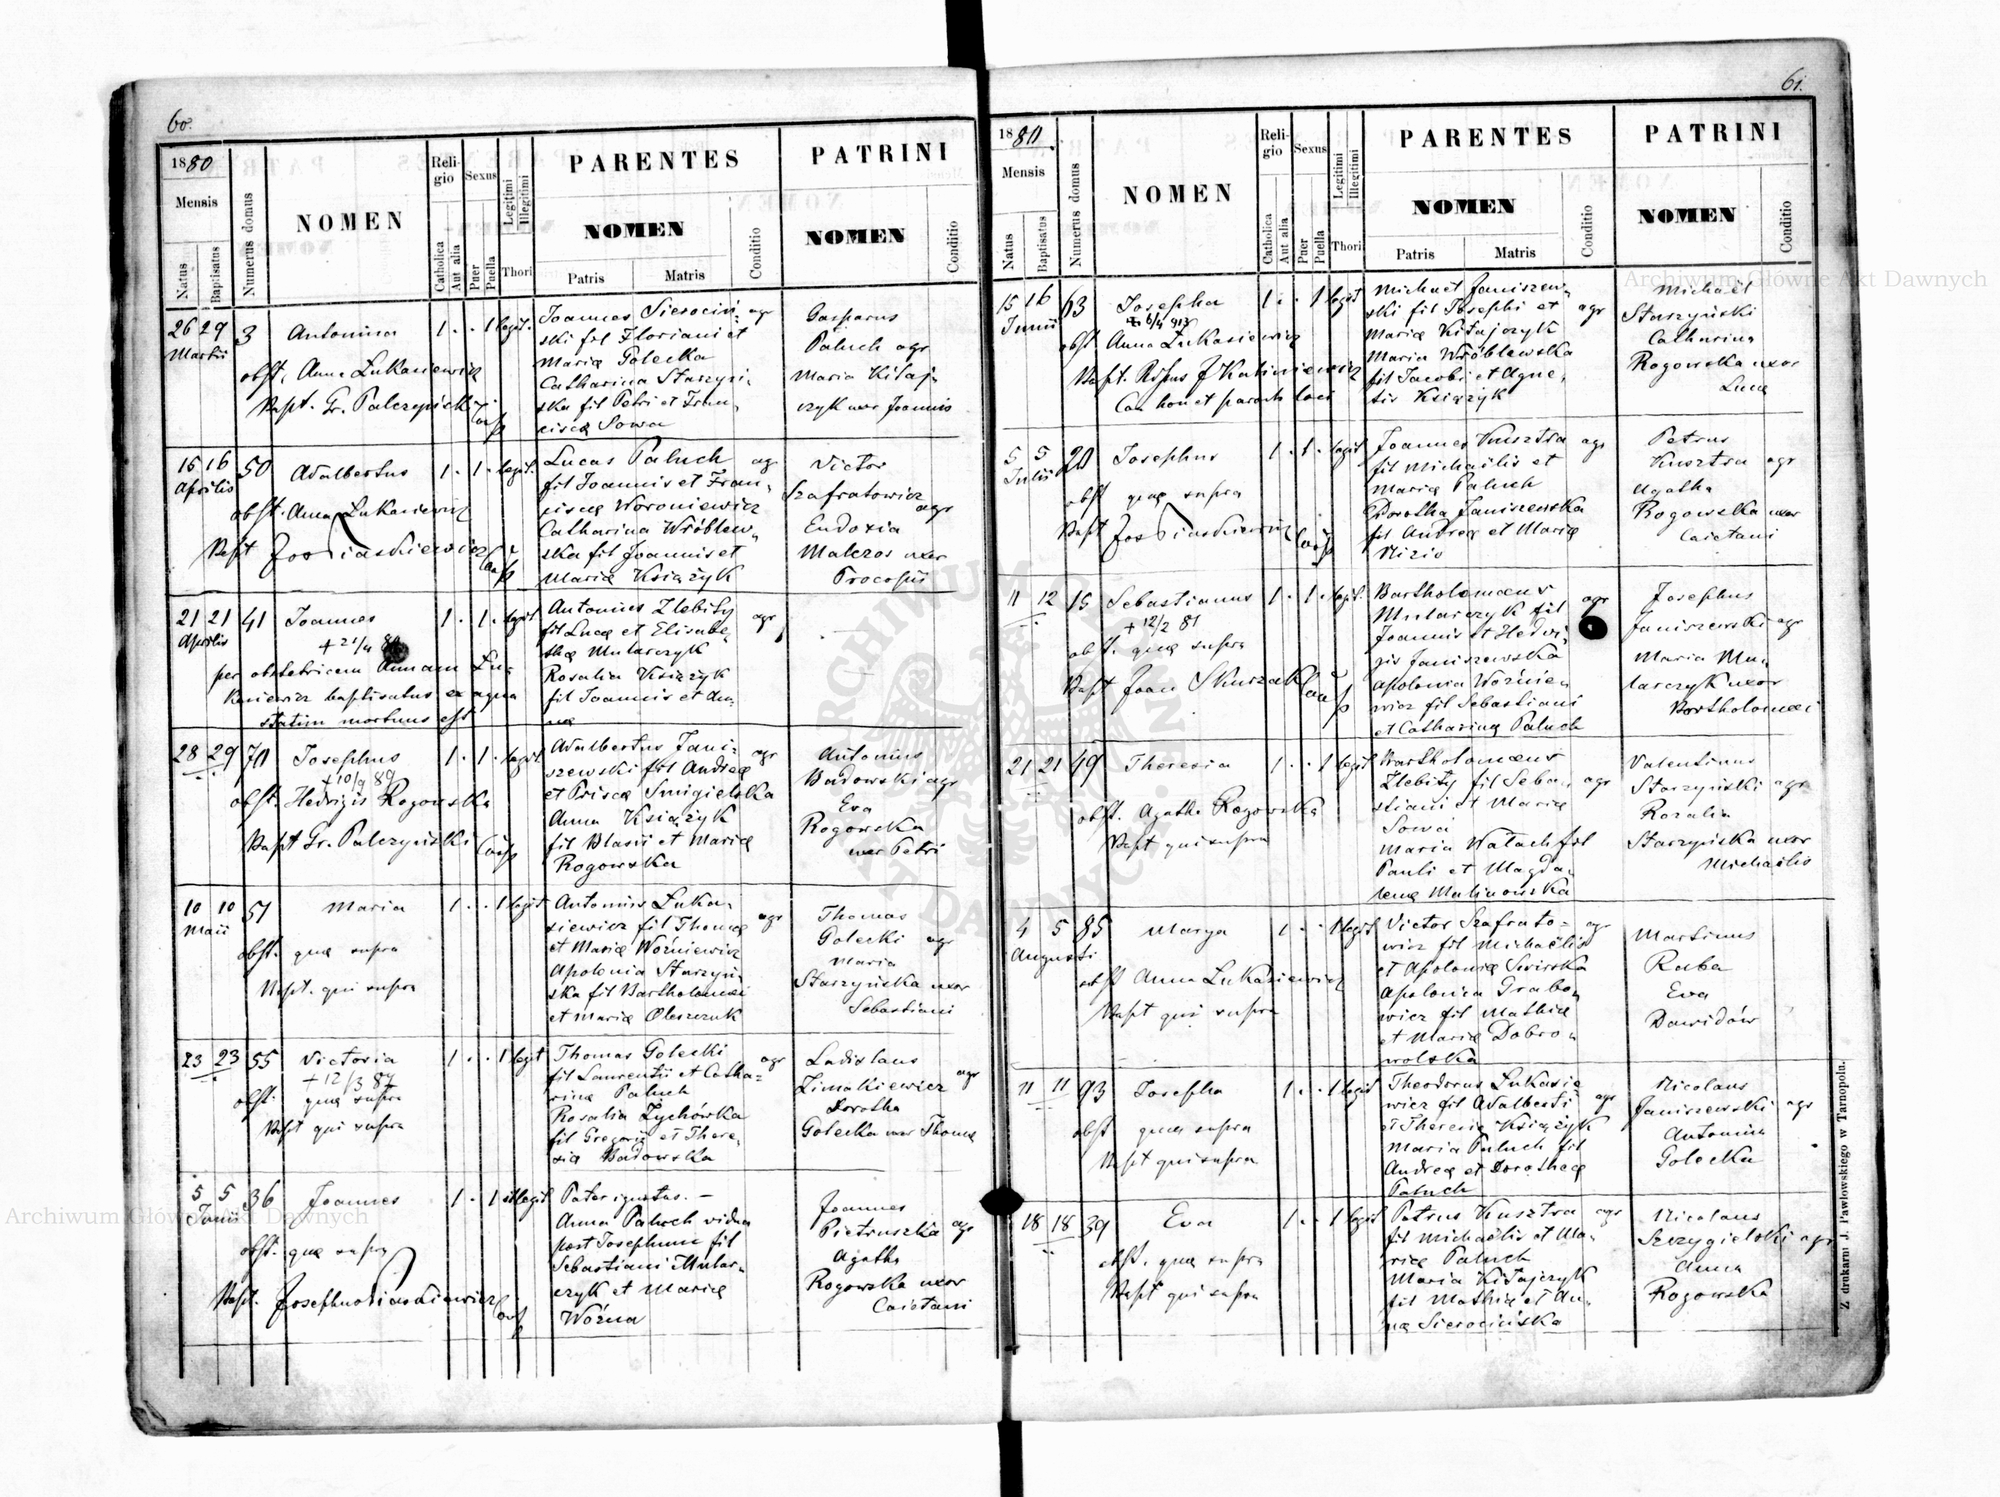 60.
1880
Mensis
Natus
Baptisatus
Numerus domus
NOMEN
Religio
Catholica
Aut alia
Sexus
Puer
Puella
Legitimi
Illegitimi
Thori
PARENTES
NOMEN
Patris
Matris
Conditio
PATRINI
NOMEN
Conditio
26 29 3 Antonina 1 . . 1 legit.
Martii
obst. Anna Lukasiewicz
Bapt. Gr. Palczyński
Joannes Sierociń- agr
ski fil Floriani et
Maria Golecka
Catharina Starzyń-
ska fil Petri et Fran-
cisca Sowa
Gasparus
Paluch agr
Maria Kitaj-
czyk uxor Joannis
15 16 50 Adalbertus 1 . 1 . legit.
Aprilis
obst. Anna Lukasiewicz
Bapt
Lucas Paluch agr
fil Joannis et Fran-
cisca Woroniewicz
Catharina Wróblew-
ska fil Joannis et
Maria Książyk
Victor
Szafratowicz agr
Eudoxia
Malczos uxor
Procopii
21 21 41 Joannes 1 . 1 . legit
Aprilis
+ 21/4 80
per obstetricem Annam Lu-
kasiewicz baptisatus ex aqua
statim mortuus est
Antonius Zlebity agr
fil Luca et Elisabe-
tha Mularczyk
Rosalia Książyk
fil Joannis et An-
na
28 29 70 Josephus 1 . 1 . legit
+ 10/9 89
obst. Hedvigis Rogowska
Bapt Gr. Palczyński
Adalbertus Jani- agr
szewski fil Andrea
et Prisca Smigielska
Anna Książyk
fil Blasii et Maria
Rogowska
Antonius
Badowski agr
Eva
Rogowska
uxor Petri
10 10 51 Maria 1 . . 1 legit
Maii
obst. qua supra
Bapt. qui supra
Antonius Luka-
siewicz fil Thoma agr
et Maria Woźniewicz
Apolonia Starzyń-
ska fil Bartholomaei
et Maria Oleszczuk
Thomas
Golecki agr
Maria
Starzyńska uxor
Sebastiani
23 23 55 Victoria 1 . . 1 legit
+ 12/3 87
obst. qua supra
Bapt qui supra
Thomas Golecki agr
fil Laurentii et Catha-
rina Paluch
Rosalia Zychówka
fil Gregorii et There-
sia Badowska
Ladislaus
Zimakiewicz agr
Dorotha
Golecka uxor Thoma
5 5 36 Joannes 1 . 1 illegit
Junii
obst. qua supra
Bapt.
Pater ignotus. -
Anna Paluch vidua
post Josephum fil
Sebastiani Mular-
czyk et Maria
Woźna
Joannes
Pietruszka agr
Agatha
Rogowska uxor
Caietani
61.
1880.
Mensis
Natus
Baptisatus
Numerus domus
NOMEN
Religio
Catholica
Aut alia
Sexus
Puer
Puella
Legitimi
Illegitimi
Thori
PARENTES
NOMEN
Patris
Matris
Conditio
PATRINI
NOMEN
Conditio
15 16 63 Josepha 1 . . 1 legit
Junii
+ 6/4 913
obst Anna Lukasiewicz
Bapt.
Can hon et paroch loci
Michael Janiszew-
ski fil Josephi et agr
Maria Kitajczyk
Maria Wróblewska
fil Jacobi et Agne-
tis Książyk
Michaël
Starzyński
Catharina
Rogowska uxor
Luca
5 5 20 Josephus 1 . 1 . legit
Julii
obst qua supra
Bapt
Joannes Kusztra agr
fil Michaëlis et
Maria Paluch
Dorotha Janiszewska
fil Andrea et Maria
Nizio
Petrus
Kusztra agr
Agatha
Rogowska uxor
Caietani
11 12 15 Sebastianus 1 . 1 . legit.
+ 12/2 81
obst. qua supra
Bapt Joan Skurzak
Bartholomaeus agr
Mularczyk fil
Joannis et Hedvi-
gis Janiszewska
Apolonia Woźnie-
wicz fil Sebastiani
et Catharina Paluch
Josephus
Janiszewski agr
Maria Mu-
larczyk uxor
Bartholomaei
21 21 49 Theresia 1 . . 1 legit
obst. Agatha Rogowska
Bapt qui supra
Bartholomaeus
Zlebity fil Seba- agr
stiani et Maria
Sowa
Maria Watach fil
Pauli et Magda-
lena Malinowska
Valentinus
Starzyński agr
Rozalia
Starzyńska uxor
Michaëlis
4 5 85 Marya 1 . . 1 legit
Augusti
obst Anna Lukasiewicz
Bapt qui supra
Victor Szafrato- agr
wicz fil Michaëlis
et Apolonia Swirska
Apolonia Grabo-
wicz fil Mathia
et Maria Dobro-
wolska
Martinus
Raba
Eva
Dawidów
11 11 93 Josepha 1 . . 1 legit
obst qua supra
Bapt qui supra
Theodorus Lukasie
wicz fil Adalberti agr
et Theresia Książyk
Maria Paluch fil
Andrea et Dorothea
Paluch
Nicolaus
Janiszewski agr
Antonina
Golecka
18 18 39 Eva 1 . . 1 legit
obst. qua supra
Bapt qui supra
Petrus Kusztra agr
fil Michaëlis et Ma-
ria Paluch
Maria Kitajczyk
fil Mathia et An-
na Sierocińska
Nicolaus
Szczygielski agr
Anna
Rogowska
Z drukarni J. Pawłowskiego w Tarnopolu.
Archiwum Główne Akt Dawnych
Archiwum Główne Akt Dawnych
ARCHIWUM GŁÓWNE AKT DAWNYCH